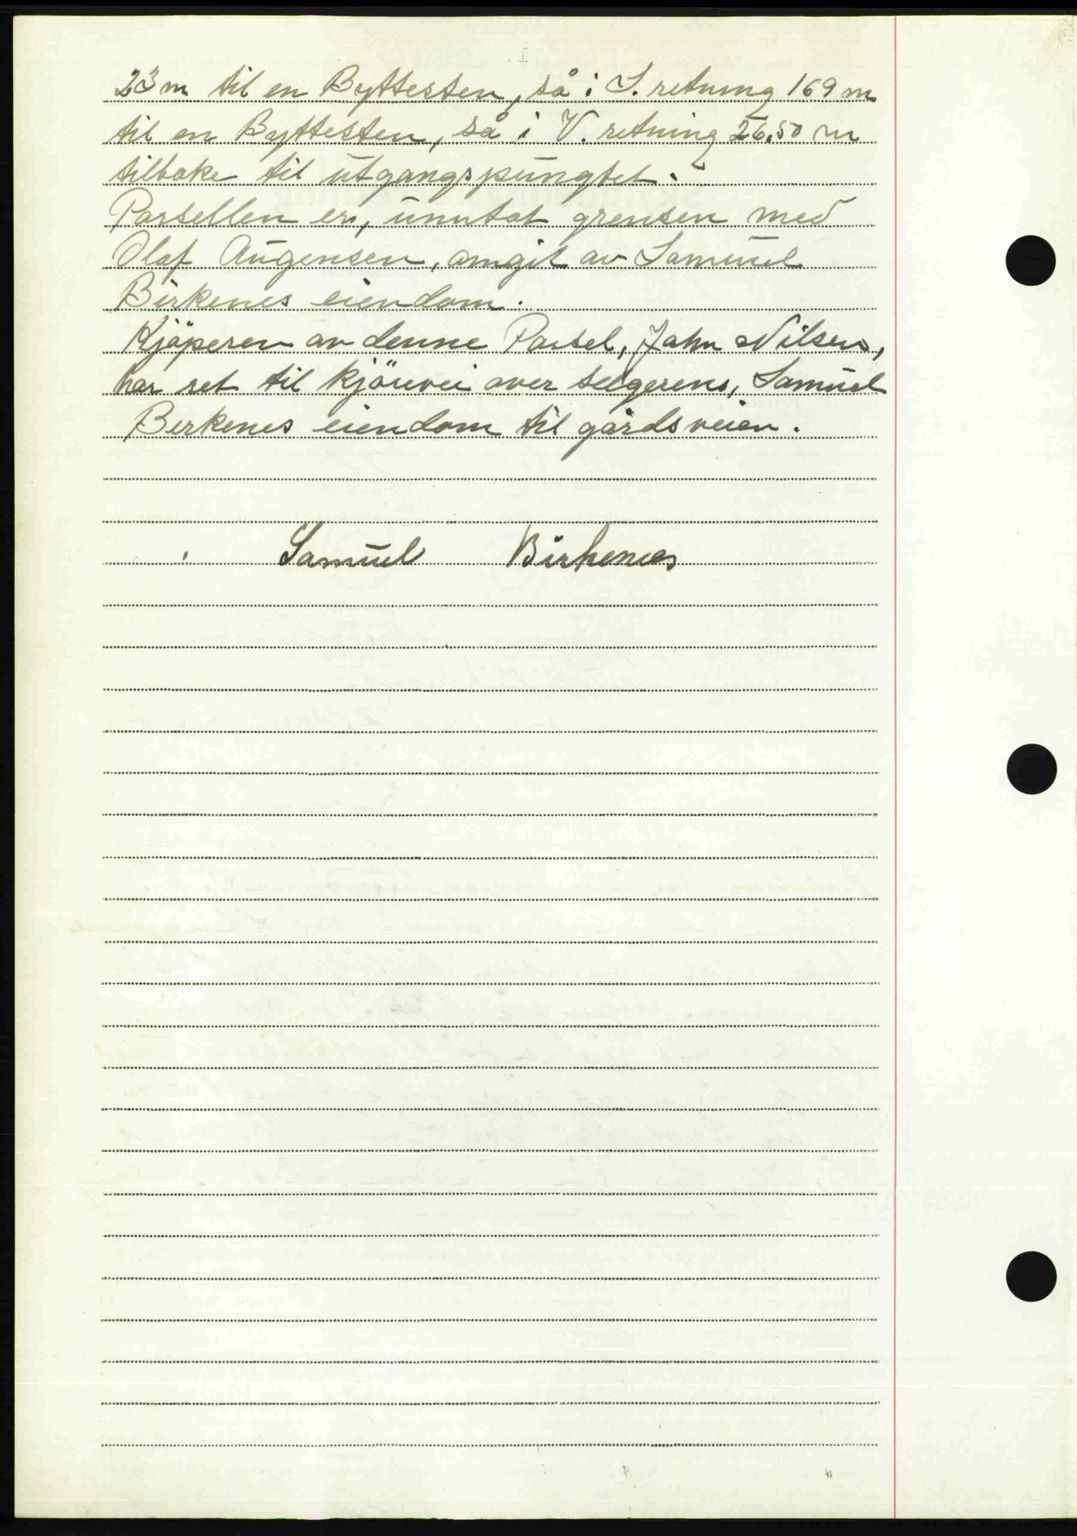 23 m til en Byttesten, så i S. retning 169 m
til en Byttesten, så i V. retning 26,50 m
tilbake til utgangspungtet.
Parsellen er, unntat grensen med
Olaf Augensen, omgit av Samuel
Birkenes eiendom.
Kjöperen av denne Parsel, John Nilsen,
har ret til kjörevei over selgerens, Samuel
Birkenes eiendom til gårdsveien.
Samuel Birkenes